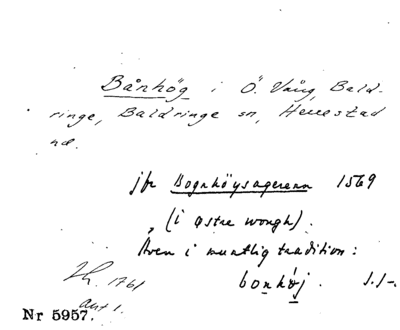 Bånhög i Ö. Vång, Bald-
ringe, Baldringe sn, Herrestad
hd.
jfr Bognhöysagerenn 1569
(i østre wongh).
Även i muntlig tradition:
bonhöj. S.I-.
1761
art 1.
Nr 5957.